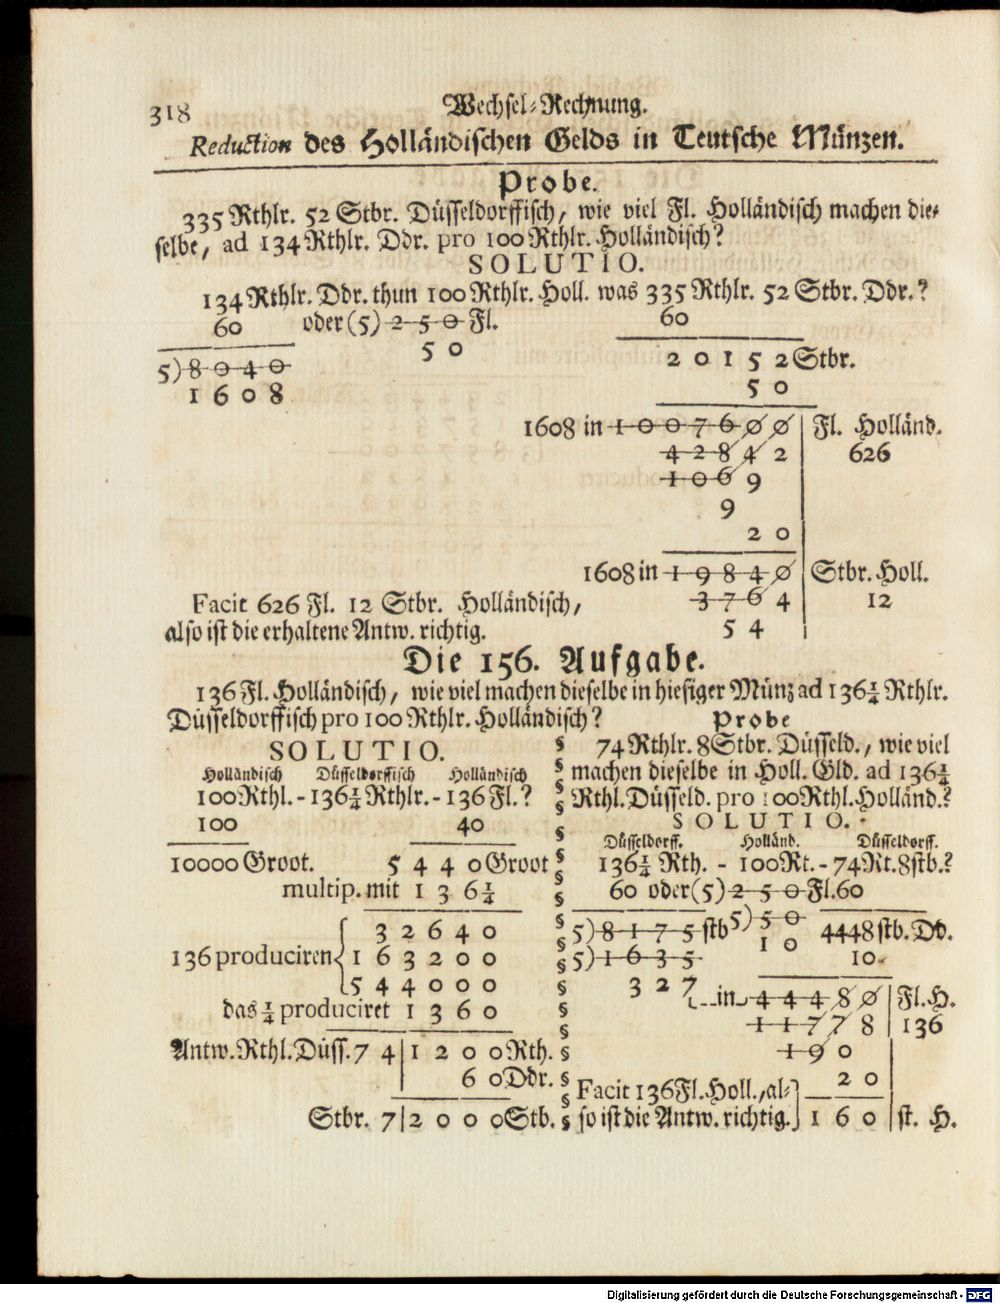 318 Wechsel-Rechnung.
Reduction des Holländischen Gelds in Teutsche Münzen.
Probe.
335 Rthlr. 52 Stbr. Düsseldorffisch, wie viel Fl. Holländisch machen die-
selbe, ad 134 Rthlr. Ddr. pro 100 Rthlr. Holländisch?
SOLUTIO.
134 Rthlr. Ddr. thun 100 Rthlr. Holl. was 335 Rthlr. 52 Stbr. Ddr.?
60 oder (5) 250 Fl. 60
50
5) 8040 20152 Stbr.
1608 50
1608 in 1007600 Fl. Holländ.
42842 626
1069
9
20
1608 in 19840 Stbr. Holl.
Facit 626 Fl. 12 Stbr. Holländisch, 3764 12
also ist die erhaltene Antw. richtig. 54
Die 156. Aufgabe.
136 Fl. Holländisch, wie viel machen dieselbe in hiesiger Münz ad 136¼ Rthlr.
Düsseldorffisch pro 100 Rthlr. Holländisch?
SOLUTIO.
Holländisch Düsseldorffisch Holländisch
100 Rthl. - 136¼ Rthlr. - 136 Fl.?
100 40
10000 Groot. 5440 Groot
multip. mit 136¼
32640
136 produciren 163200
544000
das ¼ produciret 1360
Antw. Rthl. Düss. 74|1200 Rth.
60 Ddr.
Stbr. 7|2000 Stb.
Probe
74 Rthlr. 8 Stbr. Düsseld., wie viel
machen dieselbe in Holl. Gld. ad 136¼
Rthl. Düsseld. pro 100 Rthl. Holländ.?
SOLUTIO.
Düsseldorff. Holländ. Düsseldorff.
136¼ Rth. - 100 Rt. - 74 Rt. 8 stb.?
60 oder (5) 250 Fl. 60
5) 8175 stb 5) 50 4448 stb. Dd.
5) 1635 10 10
327 in 44480 Fl. H.
11778 136
190
Facit 136 Fl. Holl., al- 20
so ist die Antw. richtig. 160 st. H.
Digitalisierung gefördert durch die Deutsche Forschungsgemeinschaft - DFG